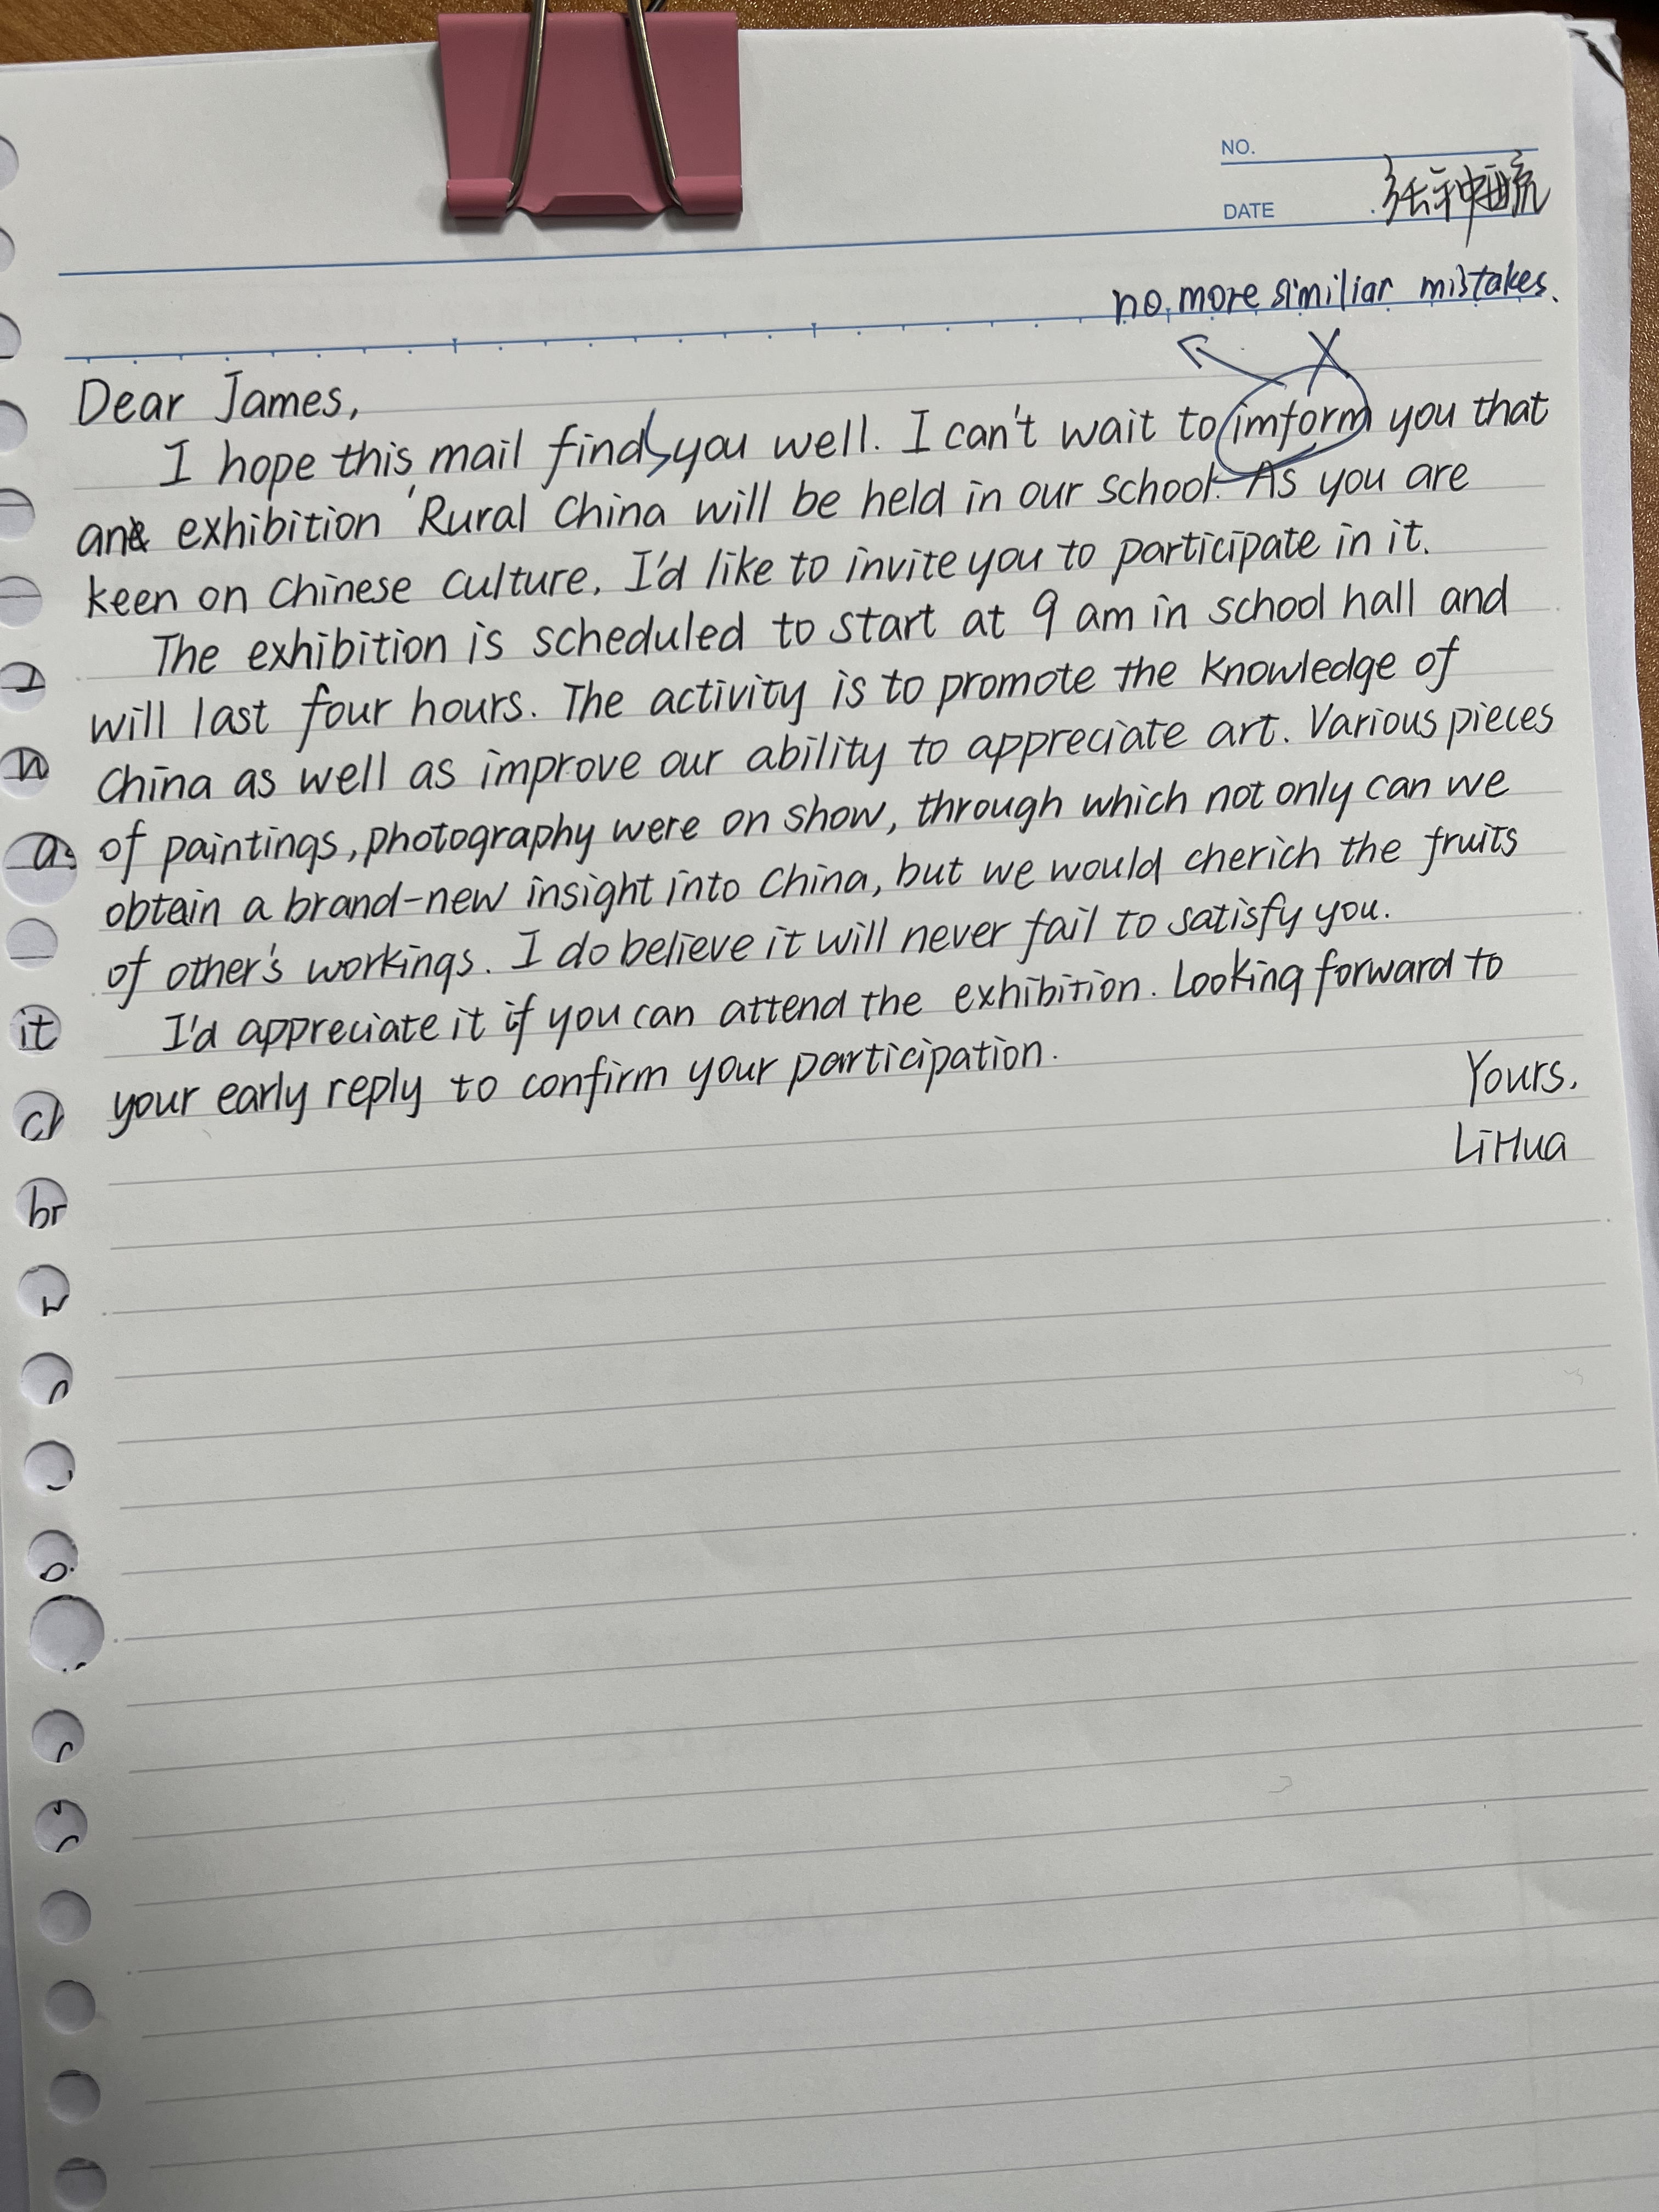 NO.
DATE
no more similiar mistakes.
Dear James,
I hope this mail finds you well. I can't wait to imform you that
an exhibition 'Rural China will be held in our school. As you are
keen on Chinese culture, I'd like to invite you to participate in it.
The exhibition is scheduled to start at 9 am in school hall and
will last four hours. The activity is to promote the knowledge of
China as well as improve our ability to appreciate art. Various pieces
of paintings, photography were on show, through which not only can we
obtain a brand-new insight into China, but we would cherich the fruits
of other's workings. I do believe it will never fail to satisfy you.
I'd appreciate it if you can attend the exhibition. Looking forward to
your early reply to confirm your participation.
Yours,
Li Hua
it
br